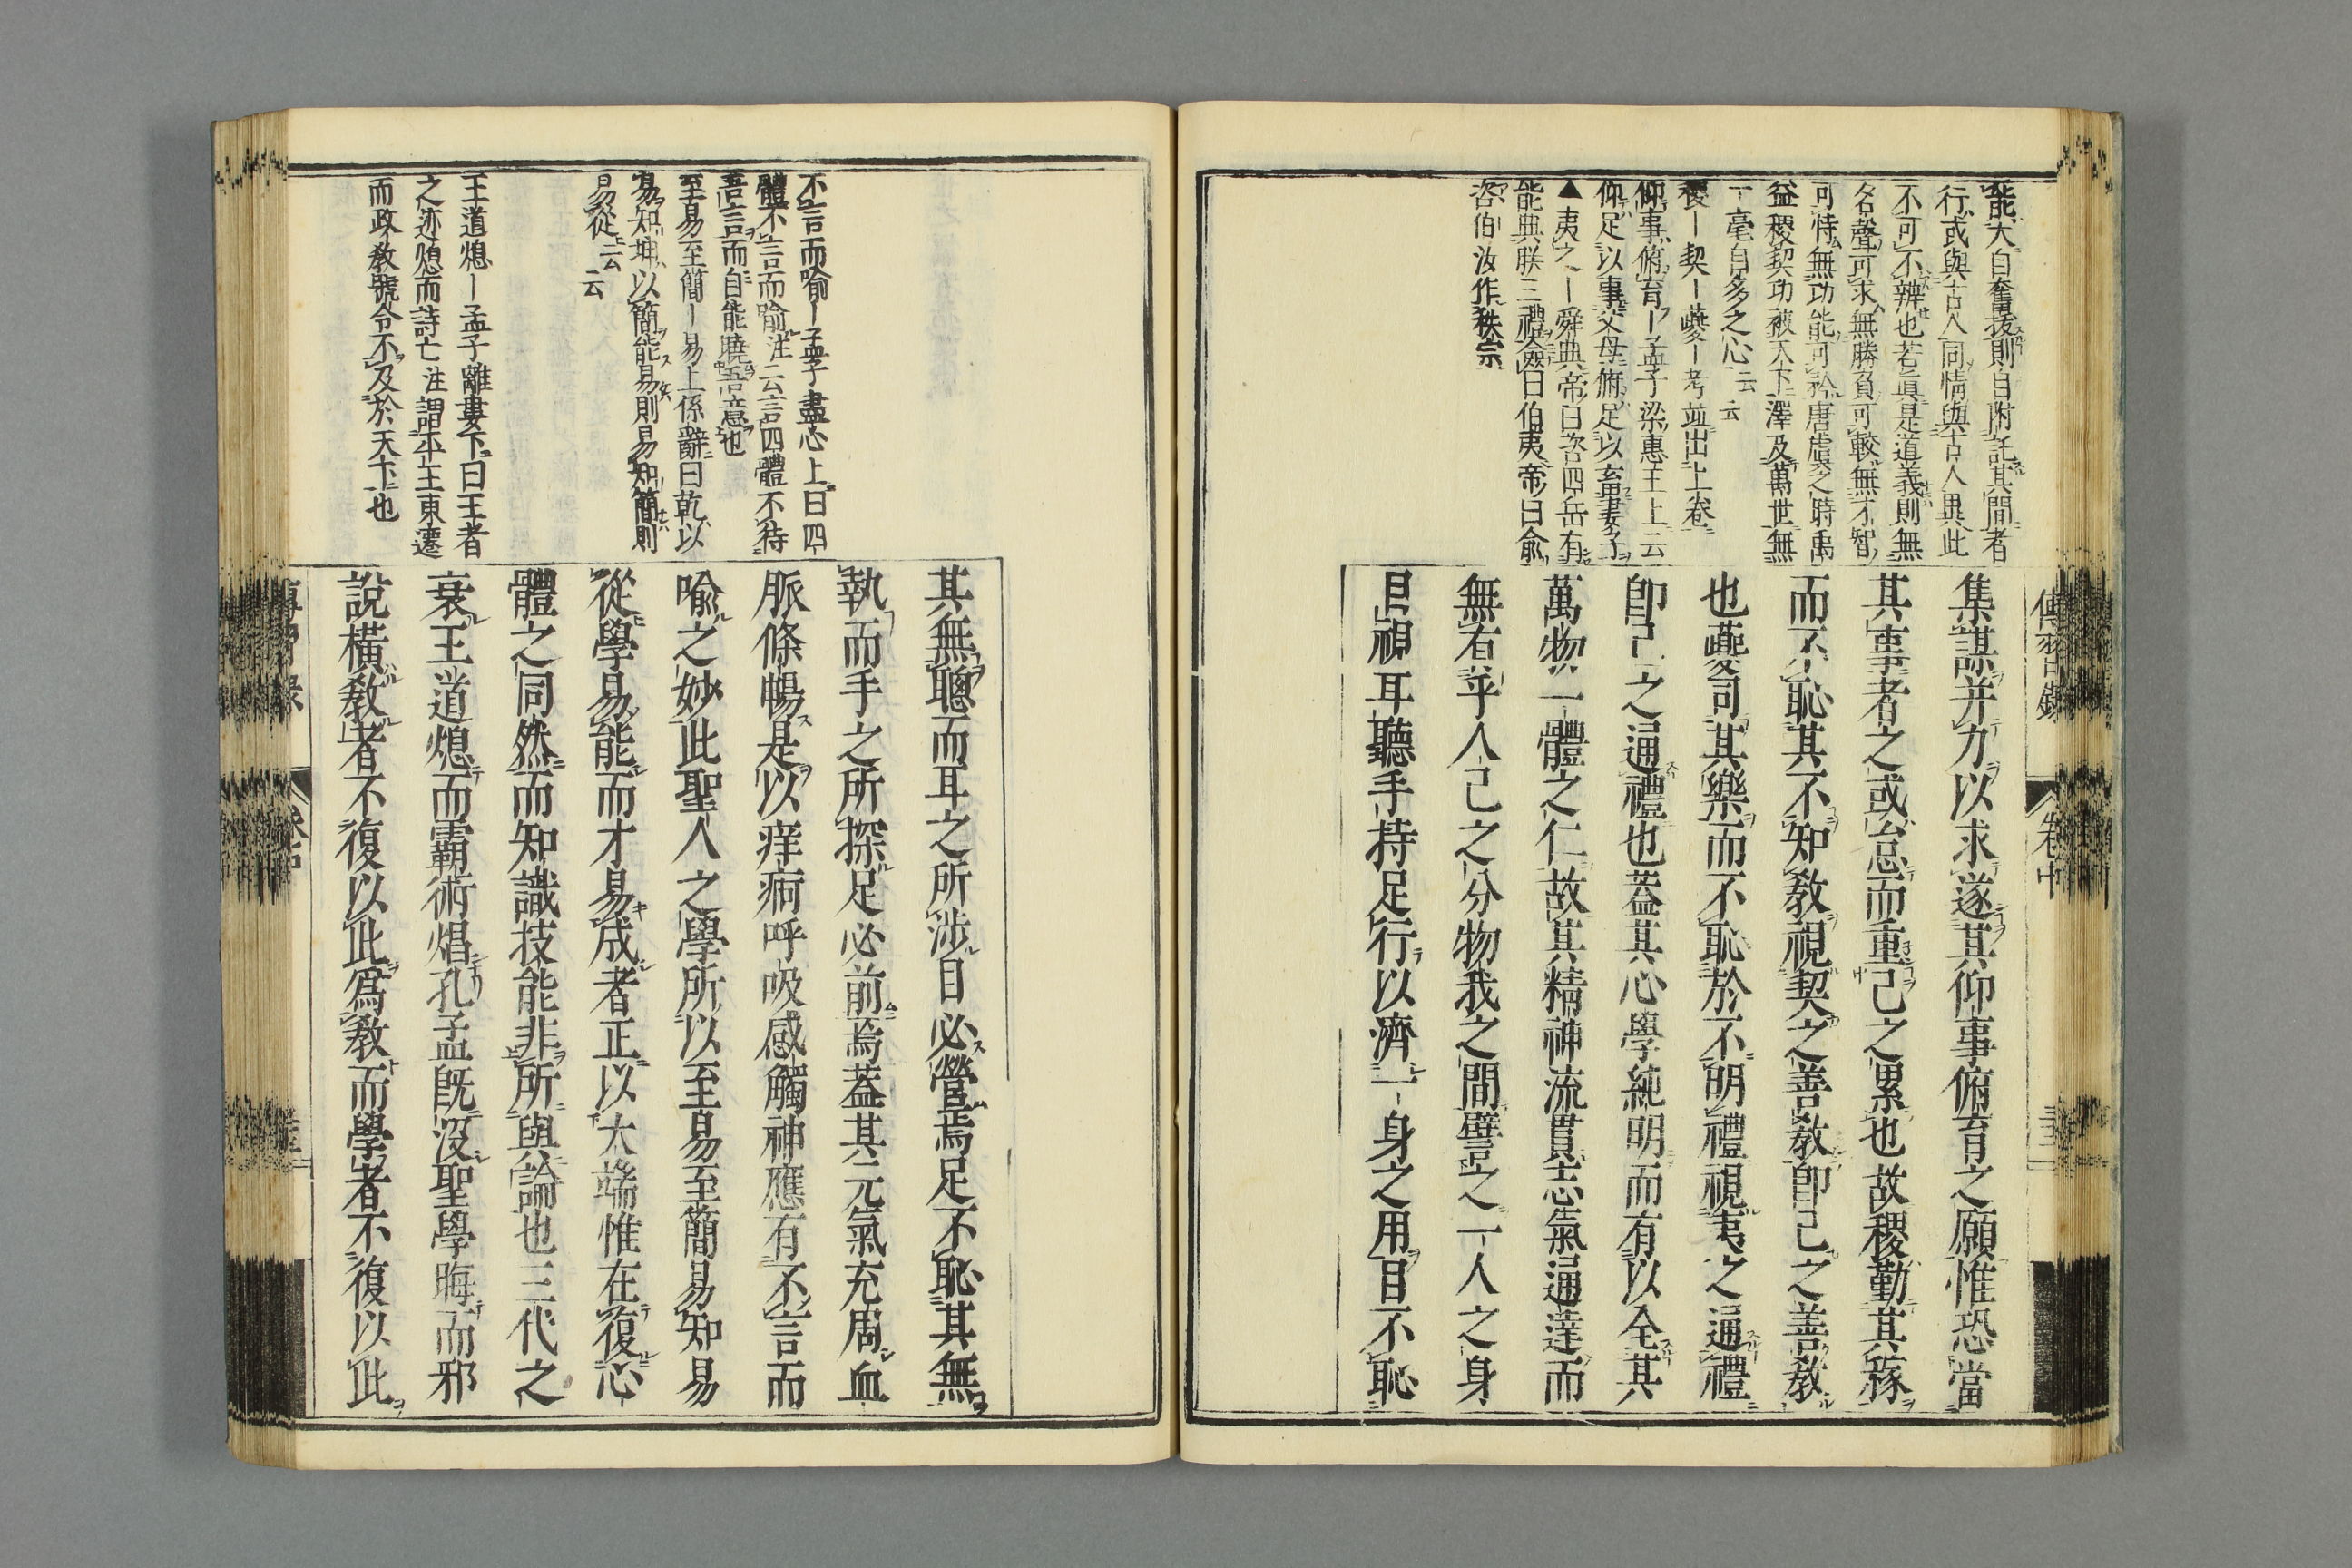 傳習錄 卷中
能大自奮拔則自附託其間者
行或與古人同情與古人異此
不可不辨也若眞是道義則無
名聲可求無勝負可較無才智
可恃無功能可矜唐虞之時禹
益稷契功被天下澤及萬世無
一毫自多之心云云
稷ー契ー夔ー考並出上卷
仰事俯育ー孟子梁惠王上云
仰足以事父母俯足以畜妻子
▲夷之ー舜典帝曰咨四岳有
能典朕三禮僉曰伯夷帝曰俞
咨伯汝作秩宗
集謀并力以求遂其仰事俯育之願惟恐當
其事者之或怠而重己之累也故稷勤其稼
而不恥其不知敎視契之善敎卽己之善敎
也夔司其樂而不恥於不明禮視夷之通禮
卽己之通禮也蓋其心學純明而有以全其
萬物一體之仁故其精神流貫志氣通達而
無有乎人己之分物我之間譬之一人之身
目視耳聽手持足行以濟一身之用目不恥
不言而喻ー孟子盡心上曰四
體不言而喻注云言四體不待
吾言而自能曉吾意也
至易至簡ー易上係辭曰乾以
易知坤以簡能易則易知簡則
易從云云
王道熄ー孟子離婁下曰王者
之迹熄而詩亡注謂平王東遷
而政敎號令不及於天下也
其無聰而耳之所涉目必營焉足不恥其無
執而手之所探足必前焉蓋其元氣充周血
脈條暢是以痒痾呼吸感觸神應有不言而
喻之妙此聖人之學所以至易至簡易知易
從學易能而才易成者正以大端惟在復心
體之同然而知識技能非所與論也三代之
衰王道熄而霸術焻孔孟旣沒聖學晦而邪
說橫敎者不復以此爲敎而學者不復以此
傳習錄 卷中